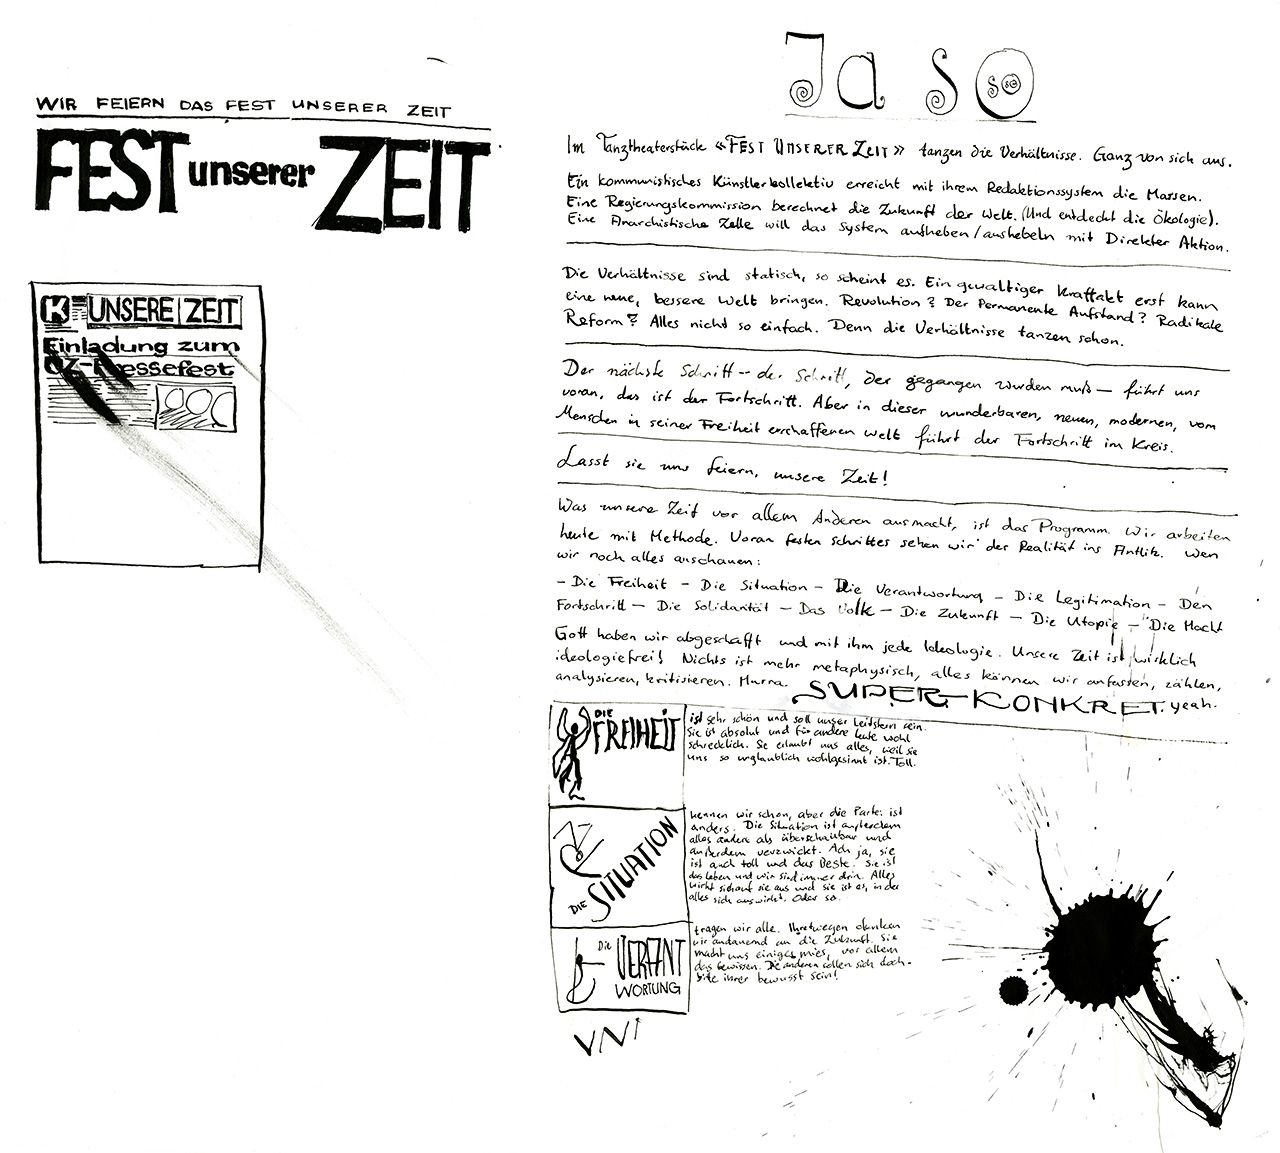 WIR FEIERN DAS FEST UNSERER ZEIT
FEST unserer ZEIT
K UNSERE ZEIT
Einladung zum
UZ-Pressefest
Ja so
so
Im Tanztheaterstück «FEST UNSERER ZEIT» tanzen die Verhältnisse. Ganz von sich aus.
Ein kommunistisches Künstlerkollektiv erreicht mit ihrem Redaktionssystem die Massen.
Eine Regierungskommission berechnet die Zukunft der Welt. (Und entdeckt die Ökologie).
Eine Anarchistische Zelle will das System aufheben/aushebeln mit Direkter Aktion.
Die Verhältnisse sind statisch, so scheint es. Ein gewaltiger Kraftakt erst kann
eine neue, bessere Welt bringen. Revolution? Der Permanente Aufstand? Radikale
Reform? Alles nicht so einfach. Denn die Verhältnisse tanzen schon.
Der nächste Schritt – der Schritt, der gegangen werden muß – führt uns
voran, das ist der Fortschritt. Aber in dieser wunderbaren, neuen, modernen, vom
Menschen in seiner Freiheit erschaffenen Welt führt der Fortschritt im Kreis.
Lasst sie uns feiern, unsere Zeit!
Was unsere Zeit vor allem Anderen ausmacht, ist das Programm. Wir arbeiten
heute mit Methode. Voran festen schrittes sehen wir der Realität ins Antlitz. Wen
wir noch alles anschauen:
– Die Freiheit – Die Situation – Die Verantwortung – Die Legitimation – Den
Fortschritt – Die Solidarität – Das Volk – Die Zukunft – Die Utopie – Die Macht
Gott haben wir abgeschafft und mit ihm jede Ideologie. Unsere Zeit ist wirklich
ideologiefrei! Nichts ist mehr metaphysisch, alles können wir anfassen, zählen,
analysieren, kritisieren. Hurra. SUPER-KONKRET. yeah.
DIE FREIHEIT
ist sehr schön und soll unser Leitstern sein.
Sie ist absolut und für andere Leute wohl
schrecklich. Sie erlaubt uns alles, weil sie
uns so unglaublich wohlgesinnt ist. Toll.
DIE SITUATION
kennen wir schon, aber die Partei ist
anders. Die Situation ist außerdem
alles andere als überschaubar und
außerdem verzwickt. Ach ja, sie
ist auch toll und das Beste. Sie ist
das Leben und wir sind immer drin. Alles
wirkt sich auf sie aus und sie ist es, in der
alles sich auswirkt. Oder so.
Die VERANT
WORTUNG
tragen wir alle. Ihretwegen denken
wir andauernd an die Zukunft. Sie
macht uns einiges mies, vor allem
das Gewissen. Die anderen sollen sich doch
bitte ihrer bewusst sein!